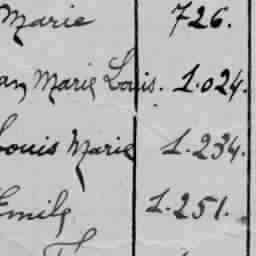 Marie 726.
an Marie Louis. 1.024.
Louis Marie 1.234.
Emile 1.251.